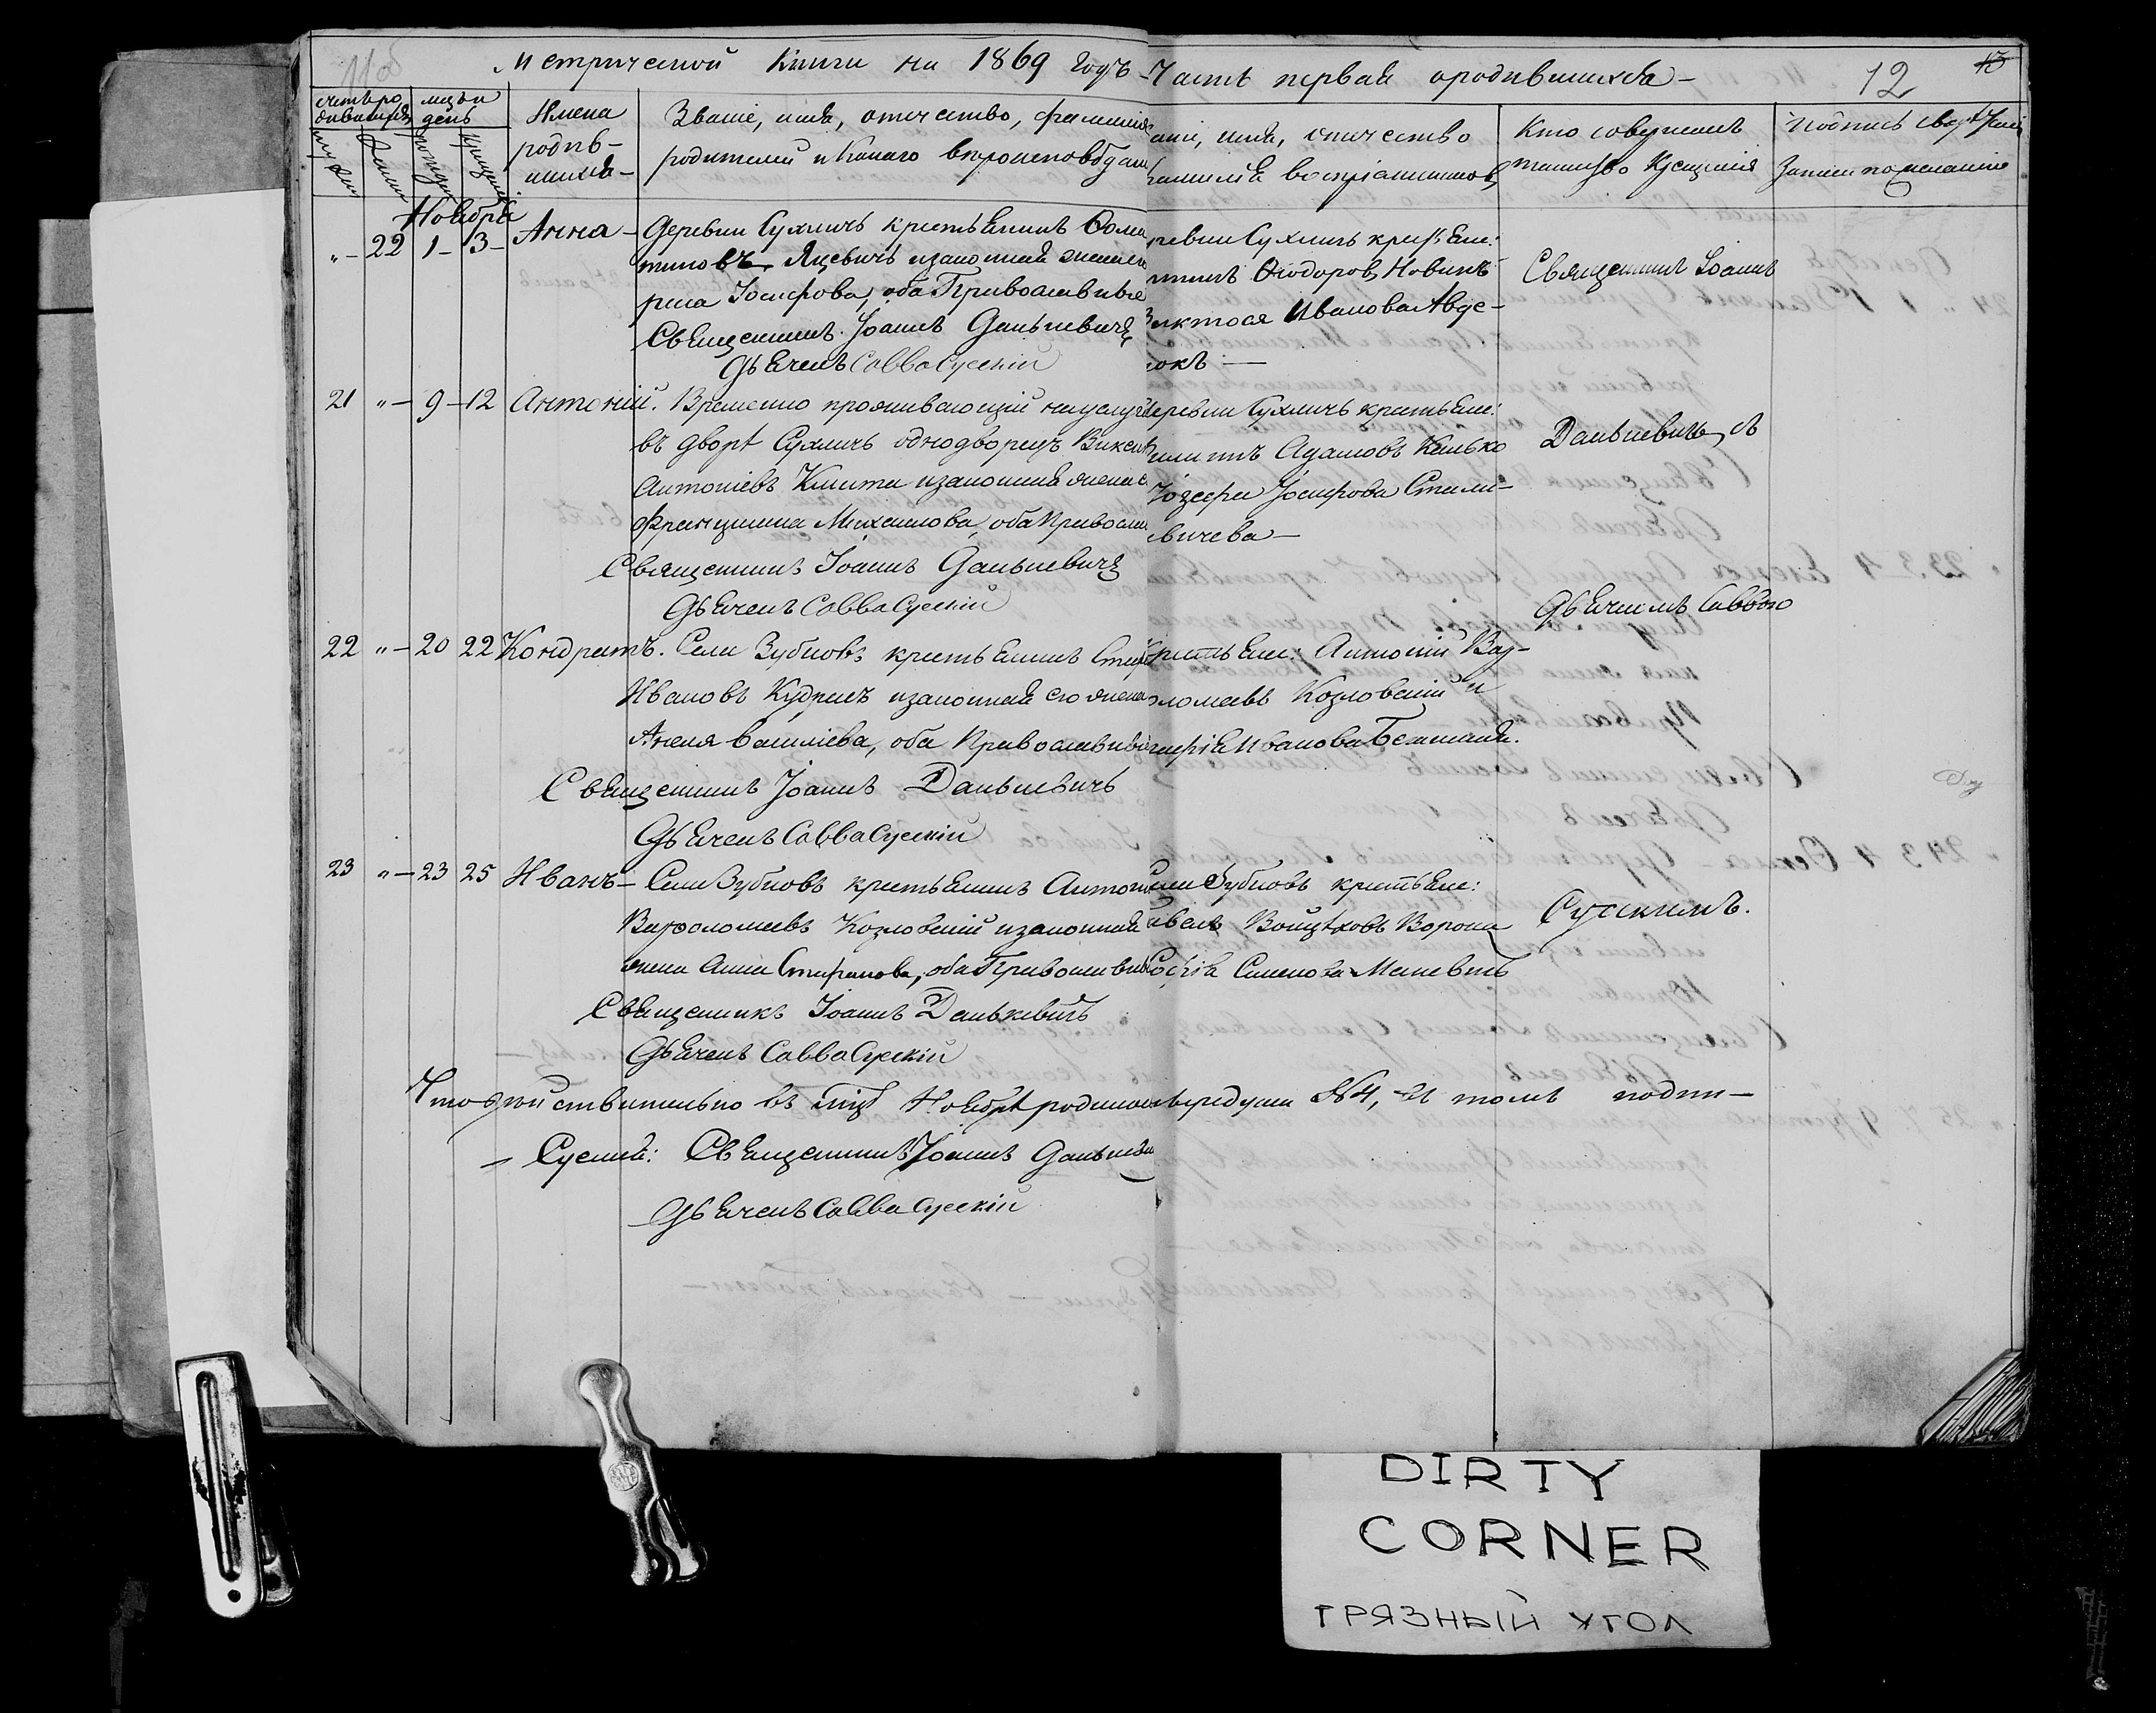 Метрической Книги на 1869 годъ
Часть первая о родившихся
12
13
11об
счетъ родившихся
мцъ и день
Имена родившихся
Званіе, имя, отчество, фамилія
родителей и какого вѣроисповѣдан
аніе, имя, отчество
фамилія воспріемниковъ
Кто совершалъ
таинство Крещенія
Подпись свидѣтелей
Записи по желанію
Ноября
22 1 3 Анна
Деревни Сухличъ крестьянинъ
Яцевичъ изаконная жена
Іосифова, оба Православные
Священникъ Іоаннъ Данькевичъ
Дьяченъ Савва Сускій
ревни Сухличъ крестьяне:
Ѳіодоровъ Новикъ
Виктося Иванова Авде-
юкъ
Священникъ Іоаннъ
21 9 12 Антоній. Временно проживающій на услуг
въ дворѣ Сухличъ однодворецъ Викен
Антоніевъ Кмита изаконная жена е
Францишка Михаилова, оба Правосла
Священникъ Іоаннъ Данькевичъ
Дьяченъ Савва Сускій
еревни Сухличъ крестьяне:
Адамовъ Канько
Іозефа Іосифова
вичева
Данькевичъ съ
Дьячкомъ Саввою
22 20 22 Кондратъ. Села Зубковъ крестьянинъ Стеф
Ивановъ Кудрицъ изаконная его жена
Анеля Василіева, оба Православны
Священникъ Іоаннъ Данькевичъ
Дьяченъ Савва Сускій
крестьяне: Антоній Вар-
ѳоломеевъ Козловскій и
Иванова
23 23 25 Иванъ Села Зубковъ крестьянинъ Антон
Варѳоломеевъ Козловскій изаконная
жена Анна Стефанова, оба Православн
Священникъ Іоаннъ Данькевичъ
Дьяченъ Савва Сускій
Села Зубковъ крестьяне:
Войцѣховъ
Софія Семенова
Сускимъ.
Что дѣйствительно въ мцѣ Ноябрѣ родилось чередуши №4, въ томъ подпи-
Суемся: Священникъ Іоаннъ Данькеви
Дьяченъ Савва Сускій
DIRTY
CORNER
ГРЯЗНЫЙ УГОЛ